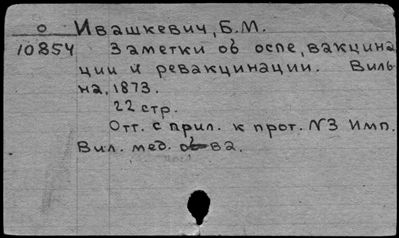 о Ивашкевич, Б.М.
10854 Заметки об оспе, вакцина
ции и ревакцинации. Виль
на, 1873.
22 стр.
Отт. с прил. к прот. N3 Имп.
Вил. мед. об-ва.